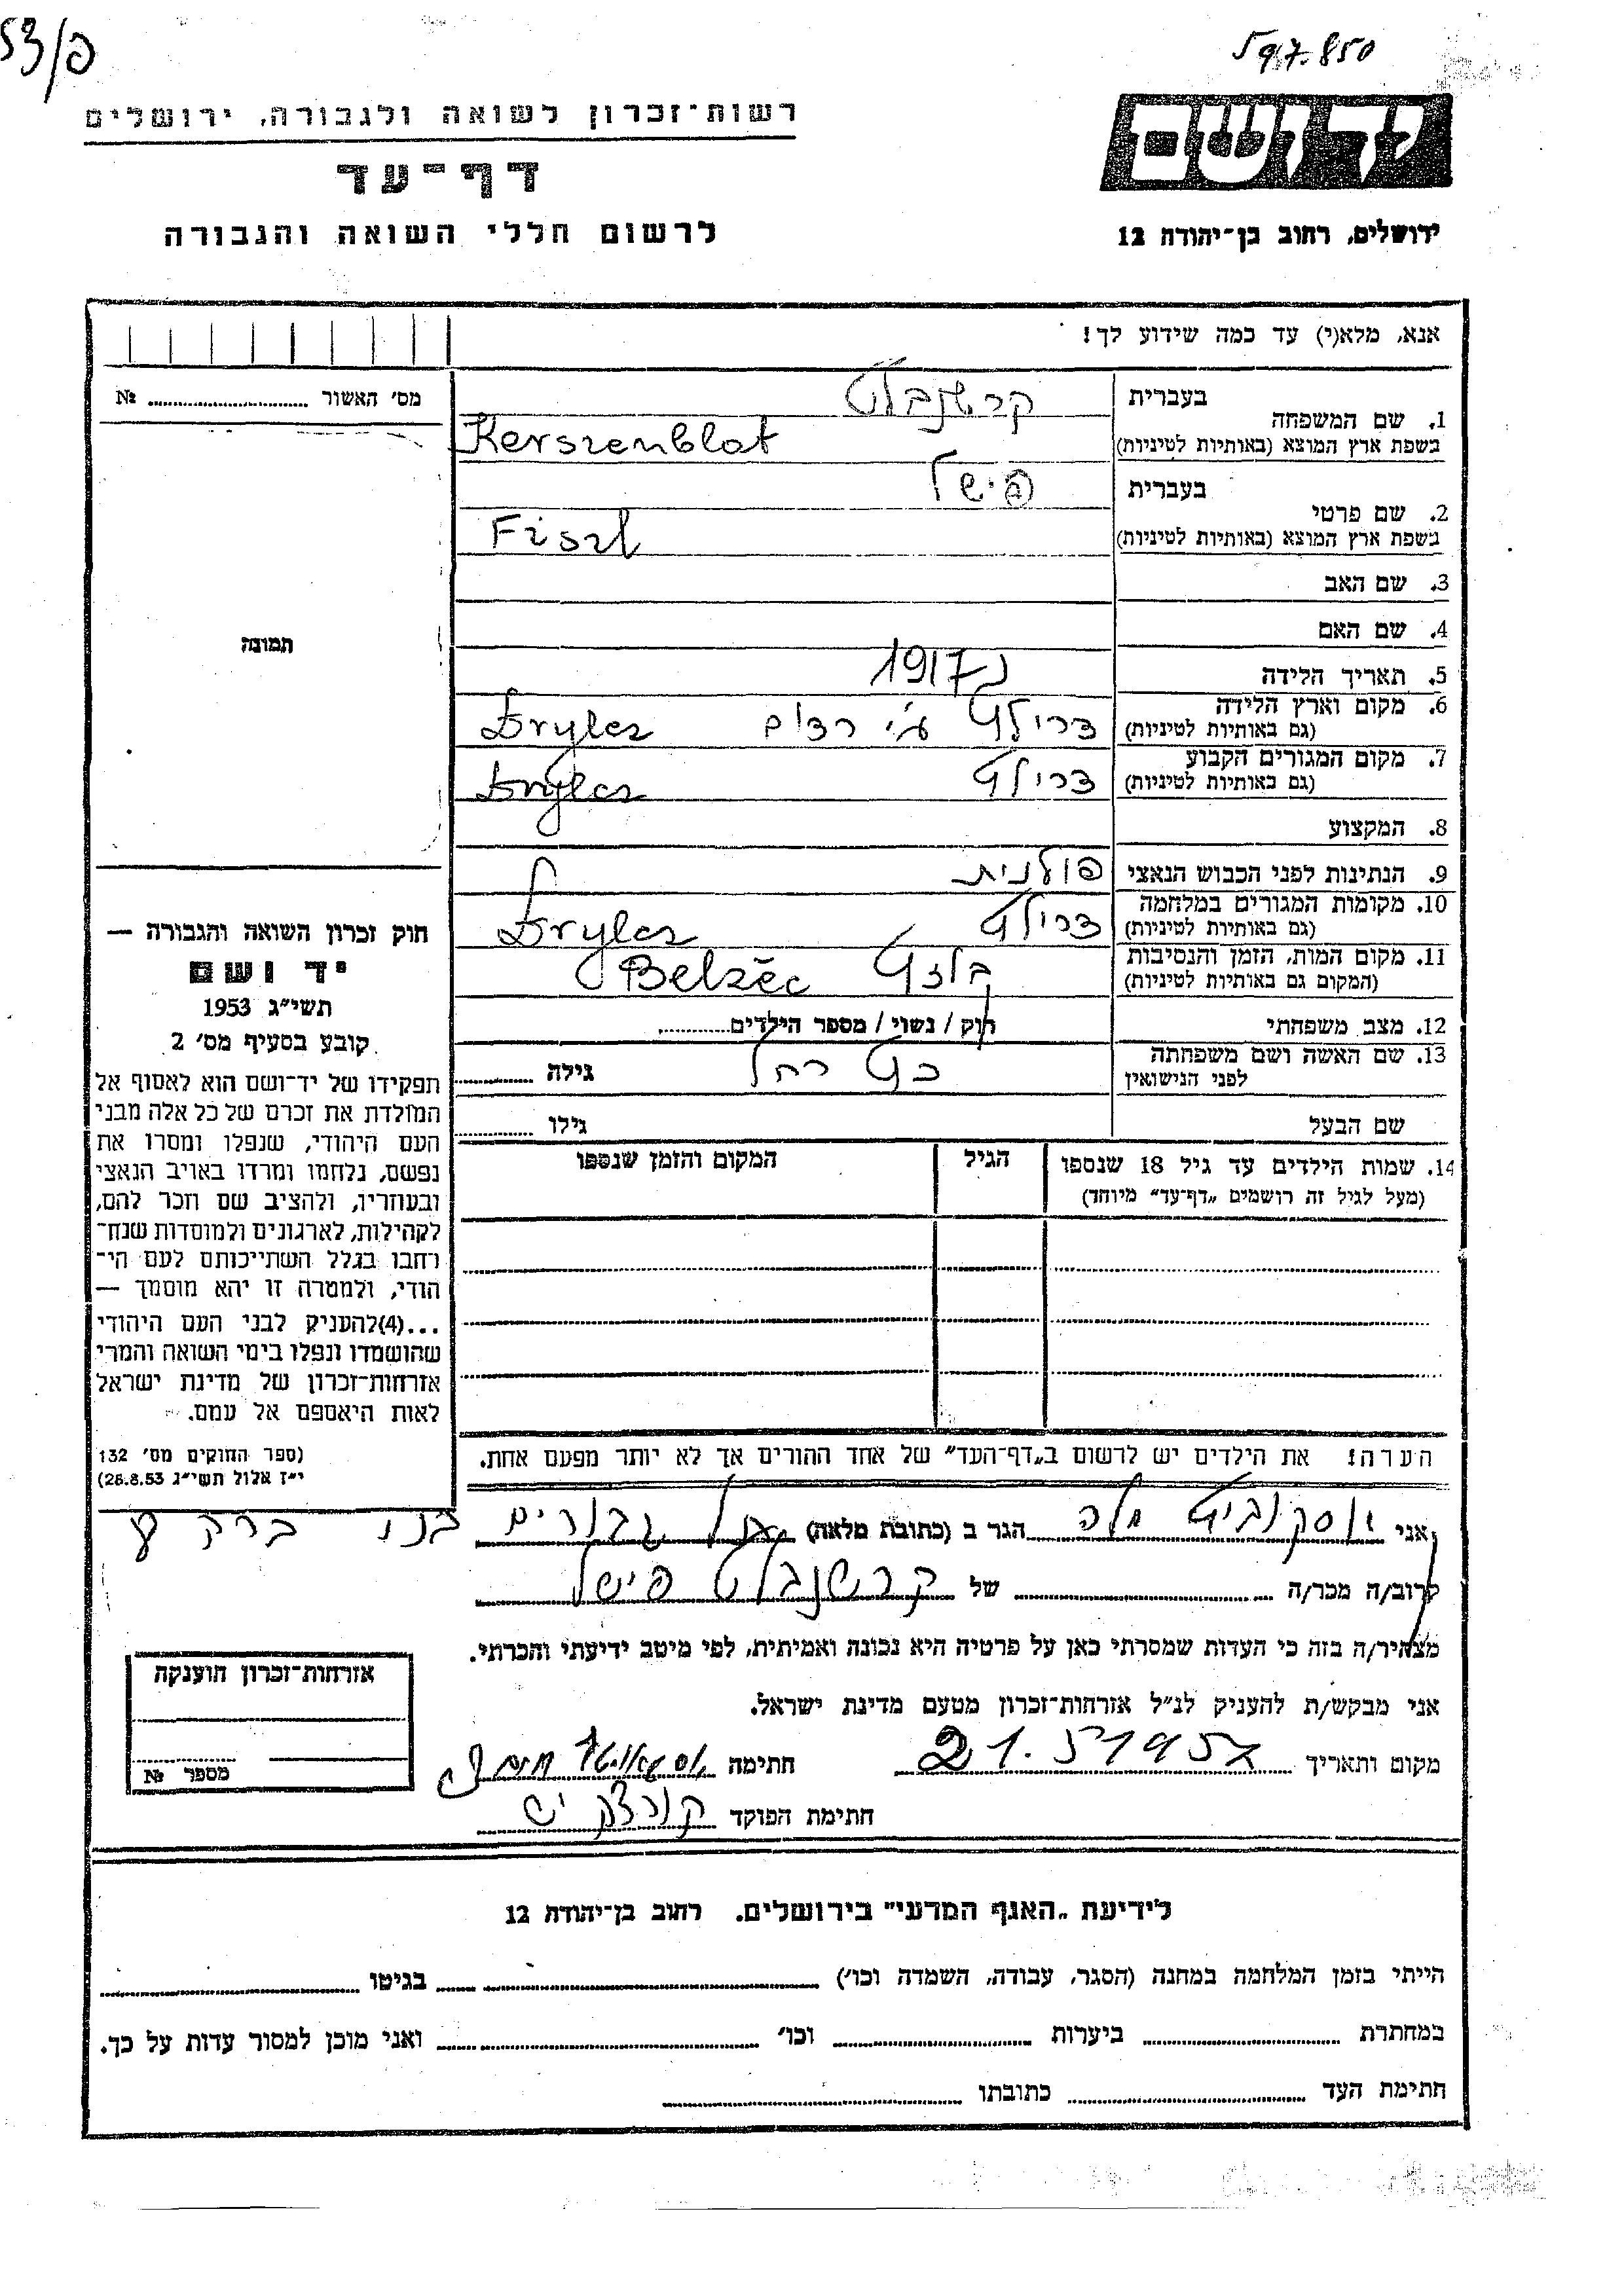 53/פ
597.850
רשות-זכרון לשואה ולגבורה, ירושלים
דף-עד
לרשום חללי השואה והגבורה
ירושלים, רחוב בן-יהודה 12
אנא, מלא(י) עד כמה שידוע לך!
מס׳ האשור ........ №
תמונה
1. שם המשפחה
בעברית קרשנבלט
בשפת ארץ המוצא (באותיות לטיניות) Kerszenblat
2. שם פרטי
בעברית פישל
בשפת ארץ המוצא (באותיות לטיניות) Fiszl
3. שם האב
4. שם האם
5. תאריך הלידה 1917
6. מקום וארץ הלידה
(גם באותיות לטיניות) דרילץ ע׳י רדום Dryles
7. מקום המגורים הקבוע
(גם באותיות לטיניות) דרילץ Dryles
8. המקצוע
9. הנתינות לפני הכבוש הנאצי פולנית
10. מקומות המגורים במלחמה
(גם באותיות לטיניות) דרילץ Dryles
11. מקום המות, הזמן והנסיבות
(המקום גם באותיות לטיניות) בלזץ Belzec
12. מצב משפחתי רוק / נשוי / מספר הילדים........
13. שם האשה ושם משפחתה
לפני הנישואין רחל גילה ........
שם הבעל גילו ........
14. שמות הילדים עד גיל 18 שנספו
(מעל לגיל זה רושמים „דף-עד״ מיוחד)
הגיל
המקום והזמן שנספו
הערה: את הילדים יש לרשום ב„דף-העד״ של אחד ההורים אך לא יותר מפעם אחת.
חוק זכרון השואה והגבורה —
יד ושם
תשי״ג 1953
קובע בסעיף מס׳ 2
תפקידו של יד-ושם הוא לאסוף אל
המולדת את זכרם של כל אלה מבני
העם היהודי, שנפלו ומסרו את
נפשם, נלחמו ומרדו באויב הנאצי
ובעוזריו, ולהציב שם וזכר להם,
לקהילות, לארגונים ולמוסדות שנח־
רחבו בגלל השתייכותם לעם הי־
הודי, ולמטרה זו יהא מוסמך —
...(4)להעניק לבני העם היהודי
שהושמדו ונפלו בימי השואה והמרי
אזרחות-זכרון של מדינת ישראל
לאות היאספם אל עמם.
(ספר החוקים מס׳ 132
י״ז אלול תשי״ג 28.8.53)
אני הגר ב (כתובת מלאה) גבורים בני ברק
קרוב/ה מכר/ה ........ של קרשנבלט פישל
מצהיר/ה בזה כי העדות שמסרתי כאן על פרטיה היא נכונה ואמיתית, לפי מיטב ידיעתי והכרתי.
אני מבקש/ת להעניק לנ״ל אזרחות-זכרון מטעם מדינת ישראל.
מקום ותאריך 21.5 1957 חתימה
חתימת הפוקד
אזרחות-זכרון הוענקה
מספר №
לידיעת „האגף המדעי״ בירושלים. רחוב בן-יהודה 12
הייתי בזמן המלחמה במחנה (הסגר, עבודה, השמדה וכו׳) ........ בגיטו ........
במחתרת ........ ביערות ........ וכו׳ ........ ואני מוכן למסור עדות על כך.
חתימת העד ........ כתובתו ........